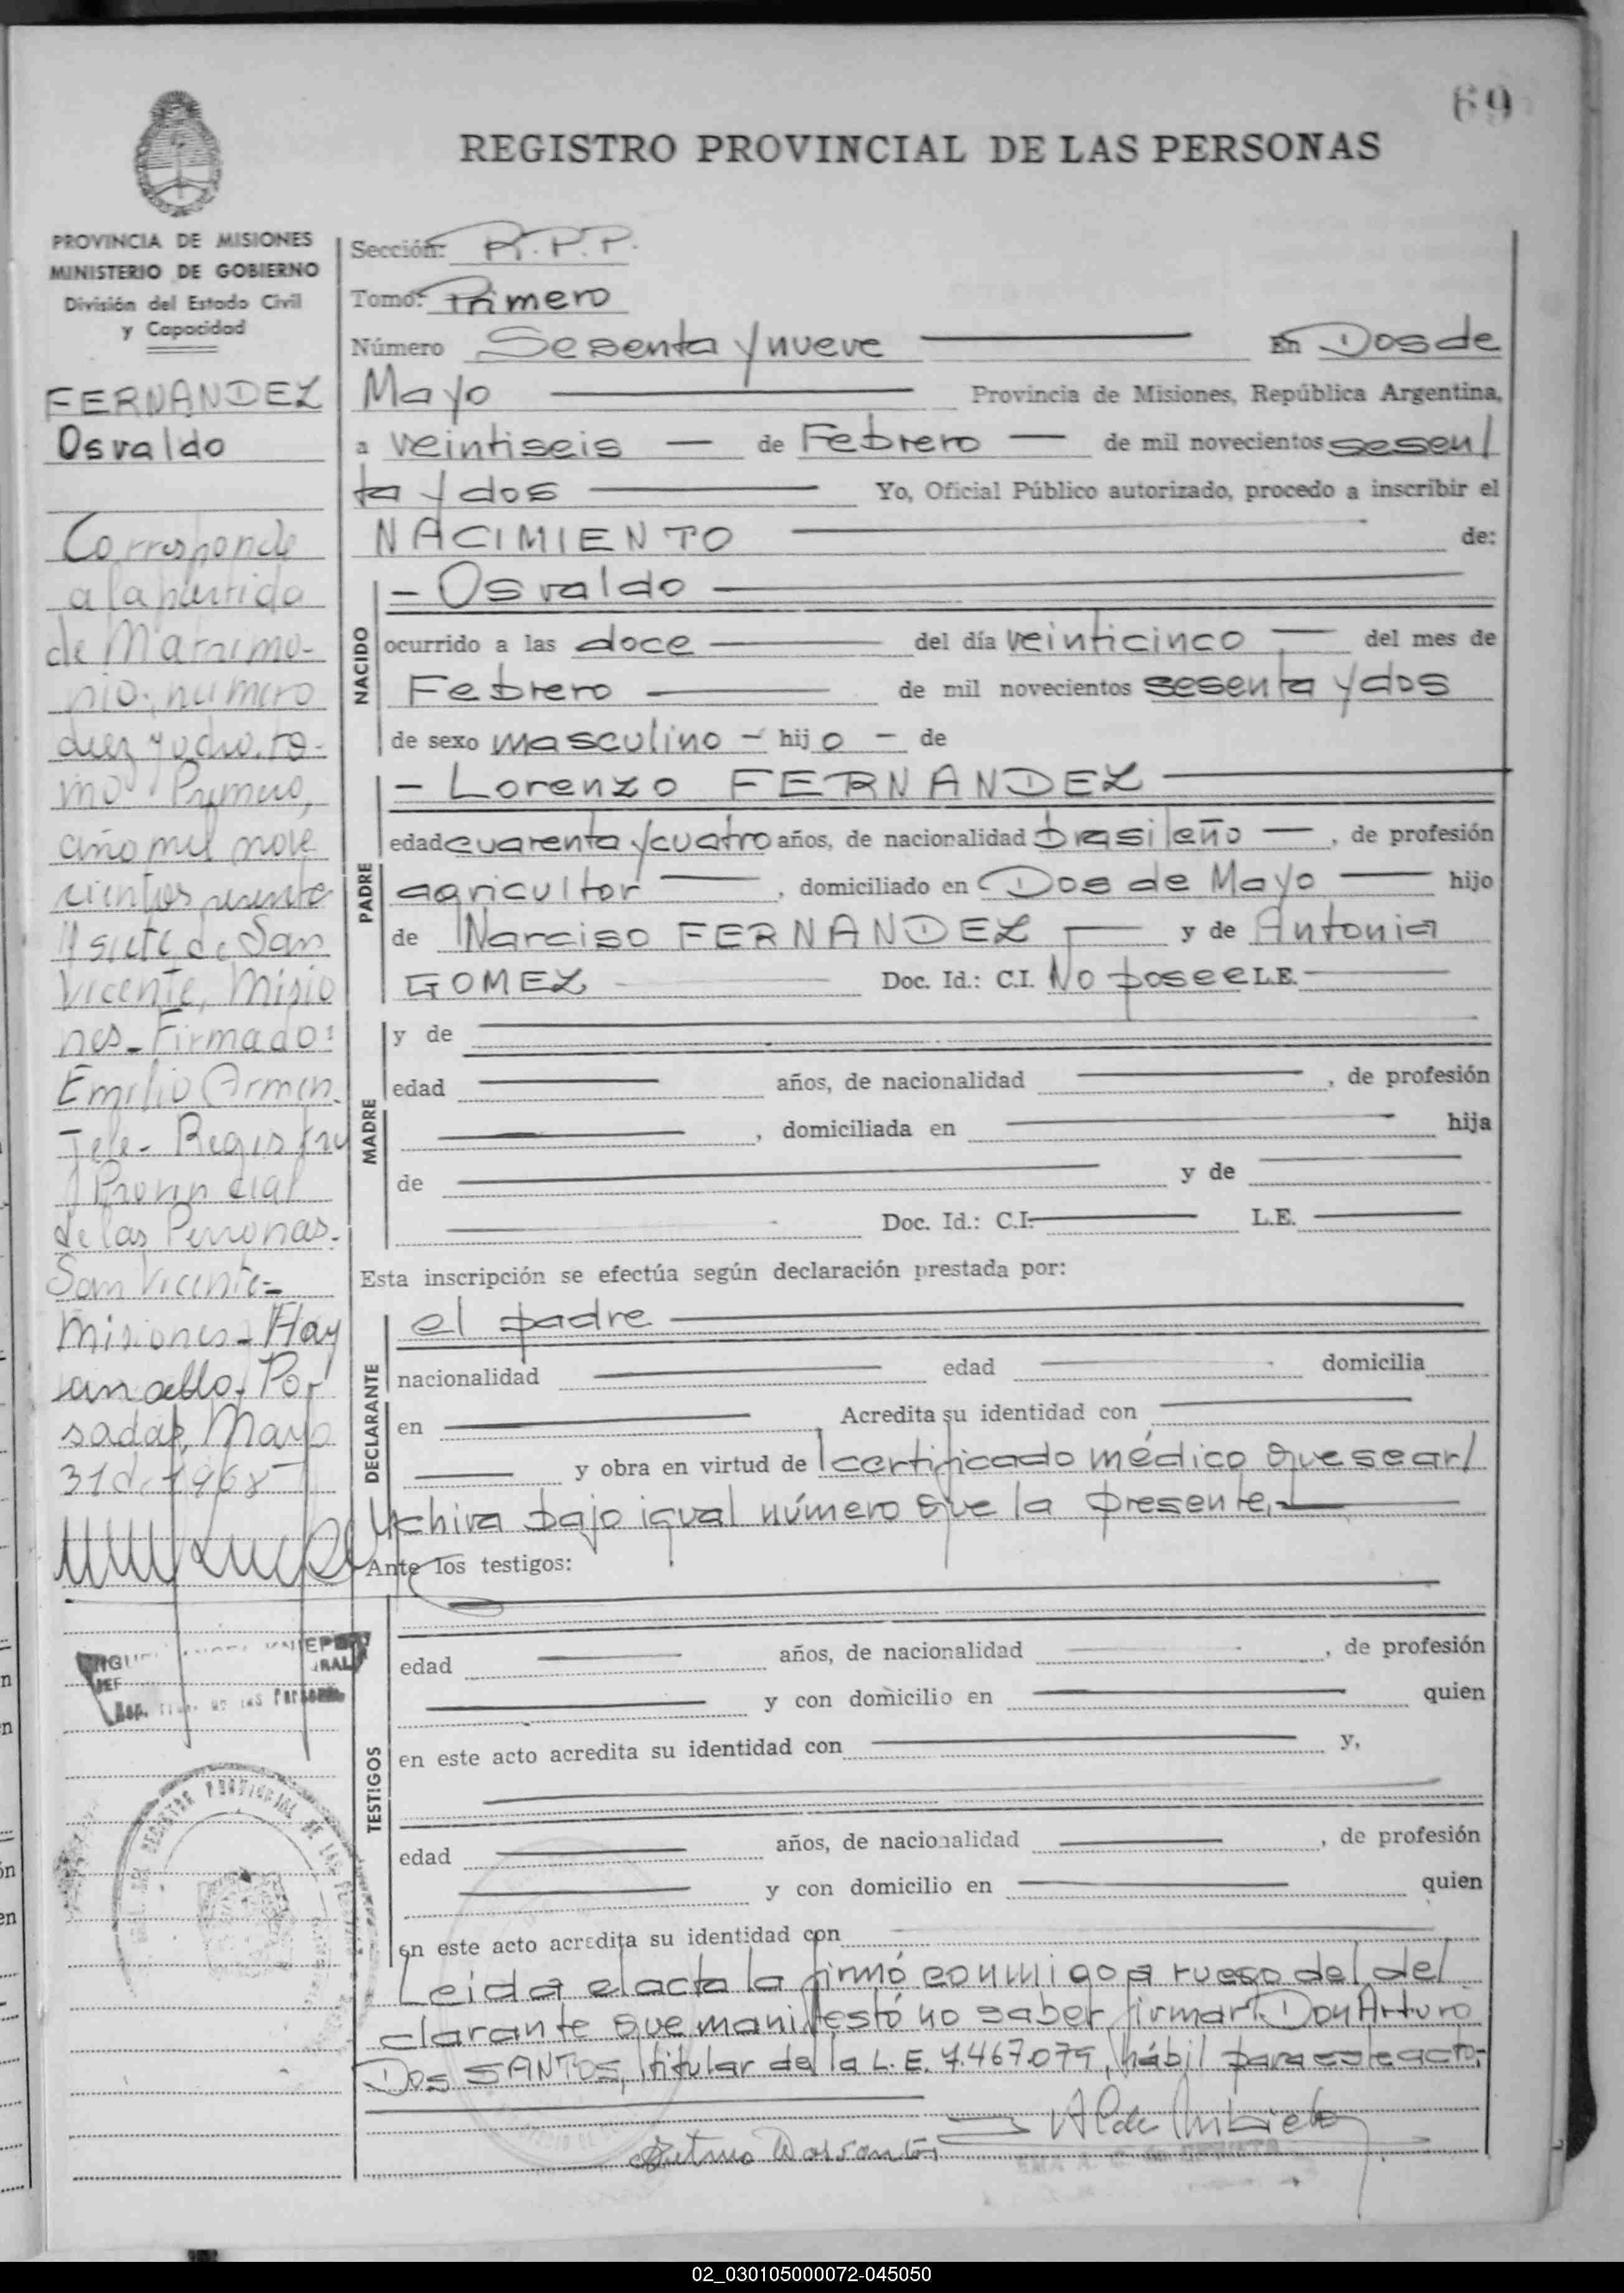 69
REGISTRO PROVINCIAL DE LAS PERSONAS
PROVINCIA DE MISIONES
MINISTERIO DE GOBIERNO
División del Estado Civil
y Capacidad
FERNANDEZ
Osvaldo
Corresponde
a la partida
de Matrimo-
nio, numero
diez y ocho, to-
mo Primero,
año mil nove
cientos sesenta
y siete de San
Vicente, Misio
nes - Firmado:
Emilio Armin.
Jefe - Registro
Provincial
de las Personas.
San Vicente =
Misiones - Hay
un sello. Po
sadas, Mayo
31 de 1968
REGISTRO PROVINCIAL DE LAS
Sección: R.P.P.
Tomo: Primero
Número Sesenta y nueve En Dos de
Mayo Provincia de Misiones, República Argentina,
a veintiseis — de Febrero — de mil novecientos sesen/
ta y dos Yo, Oficial Público autorizado, procedo a inscribir el
NACIMIENTO de:
NACIDO
- Osvaldo
ocurrido a las doce del día veinticinco — del mes de
Febrero de mil novecientos sesenta y dos
de sexo masculino - hijo - de
PADRE
- Lorenzo FERNANDEZ
edad cuarenta y cuatro años, de nacionalidad brasileño —, de profesión
agricultor —, domiciliado en Dos de Mayo — hijo
de Narciso FERNANDEZ — y de Antonia
GOMEZ Doc. Id.: C.I. No posee L.E.
MADRE
y de
edad años, de nacionalidad , de profesión
, domiciliada en hija
de y de
Doc. Id.: C.I. L.E.
Esta inscripción se efectúa según declaración prestada por:
DECLARANTE
el padre
nacionalidad edad domicilia
en Acredita su identidad con
y obra en virtud de certificado médico que se ar/
chiva bajo igual número que la presente.
Ante los testigos:
TESTIGOS
edad años, de nacionalidad , de profesión
y con domicilio en quien
en este acto acredita su identidad con y,
edad años, de nacionalidad , de profesión
y con domicilio en quien
en este acto acredita su identidad con
Leida el acta la firmó conmigo a ruego del de/
clarante que manifestó no saber firmar Don Arturo
Dos SANTOS, titular de la L.E. 7.467.079, hábil para este acto,-
Arturo Dos Santos
02_030105000072-045050